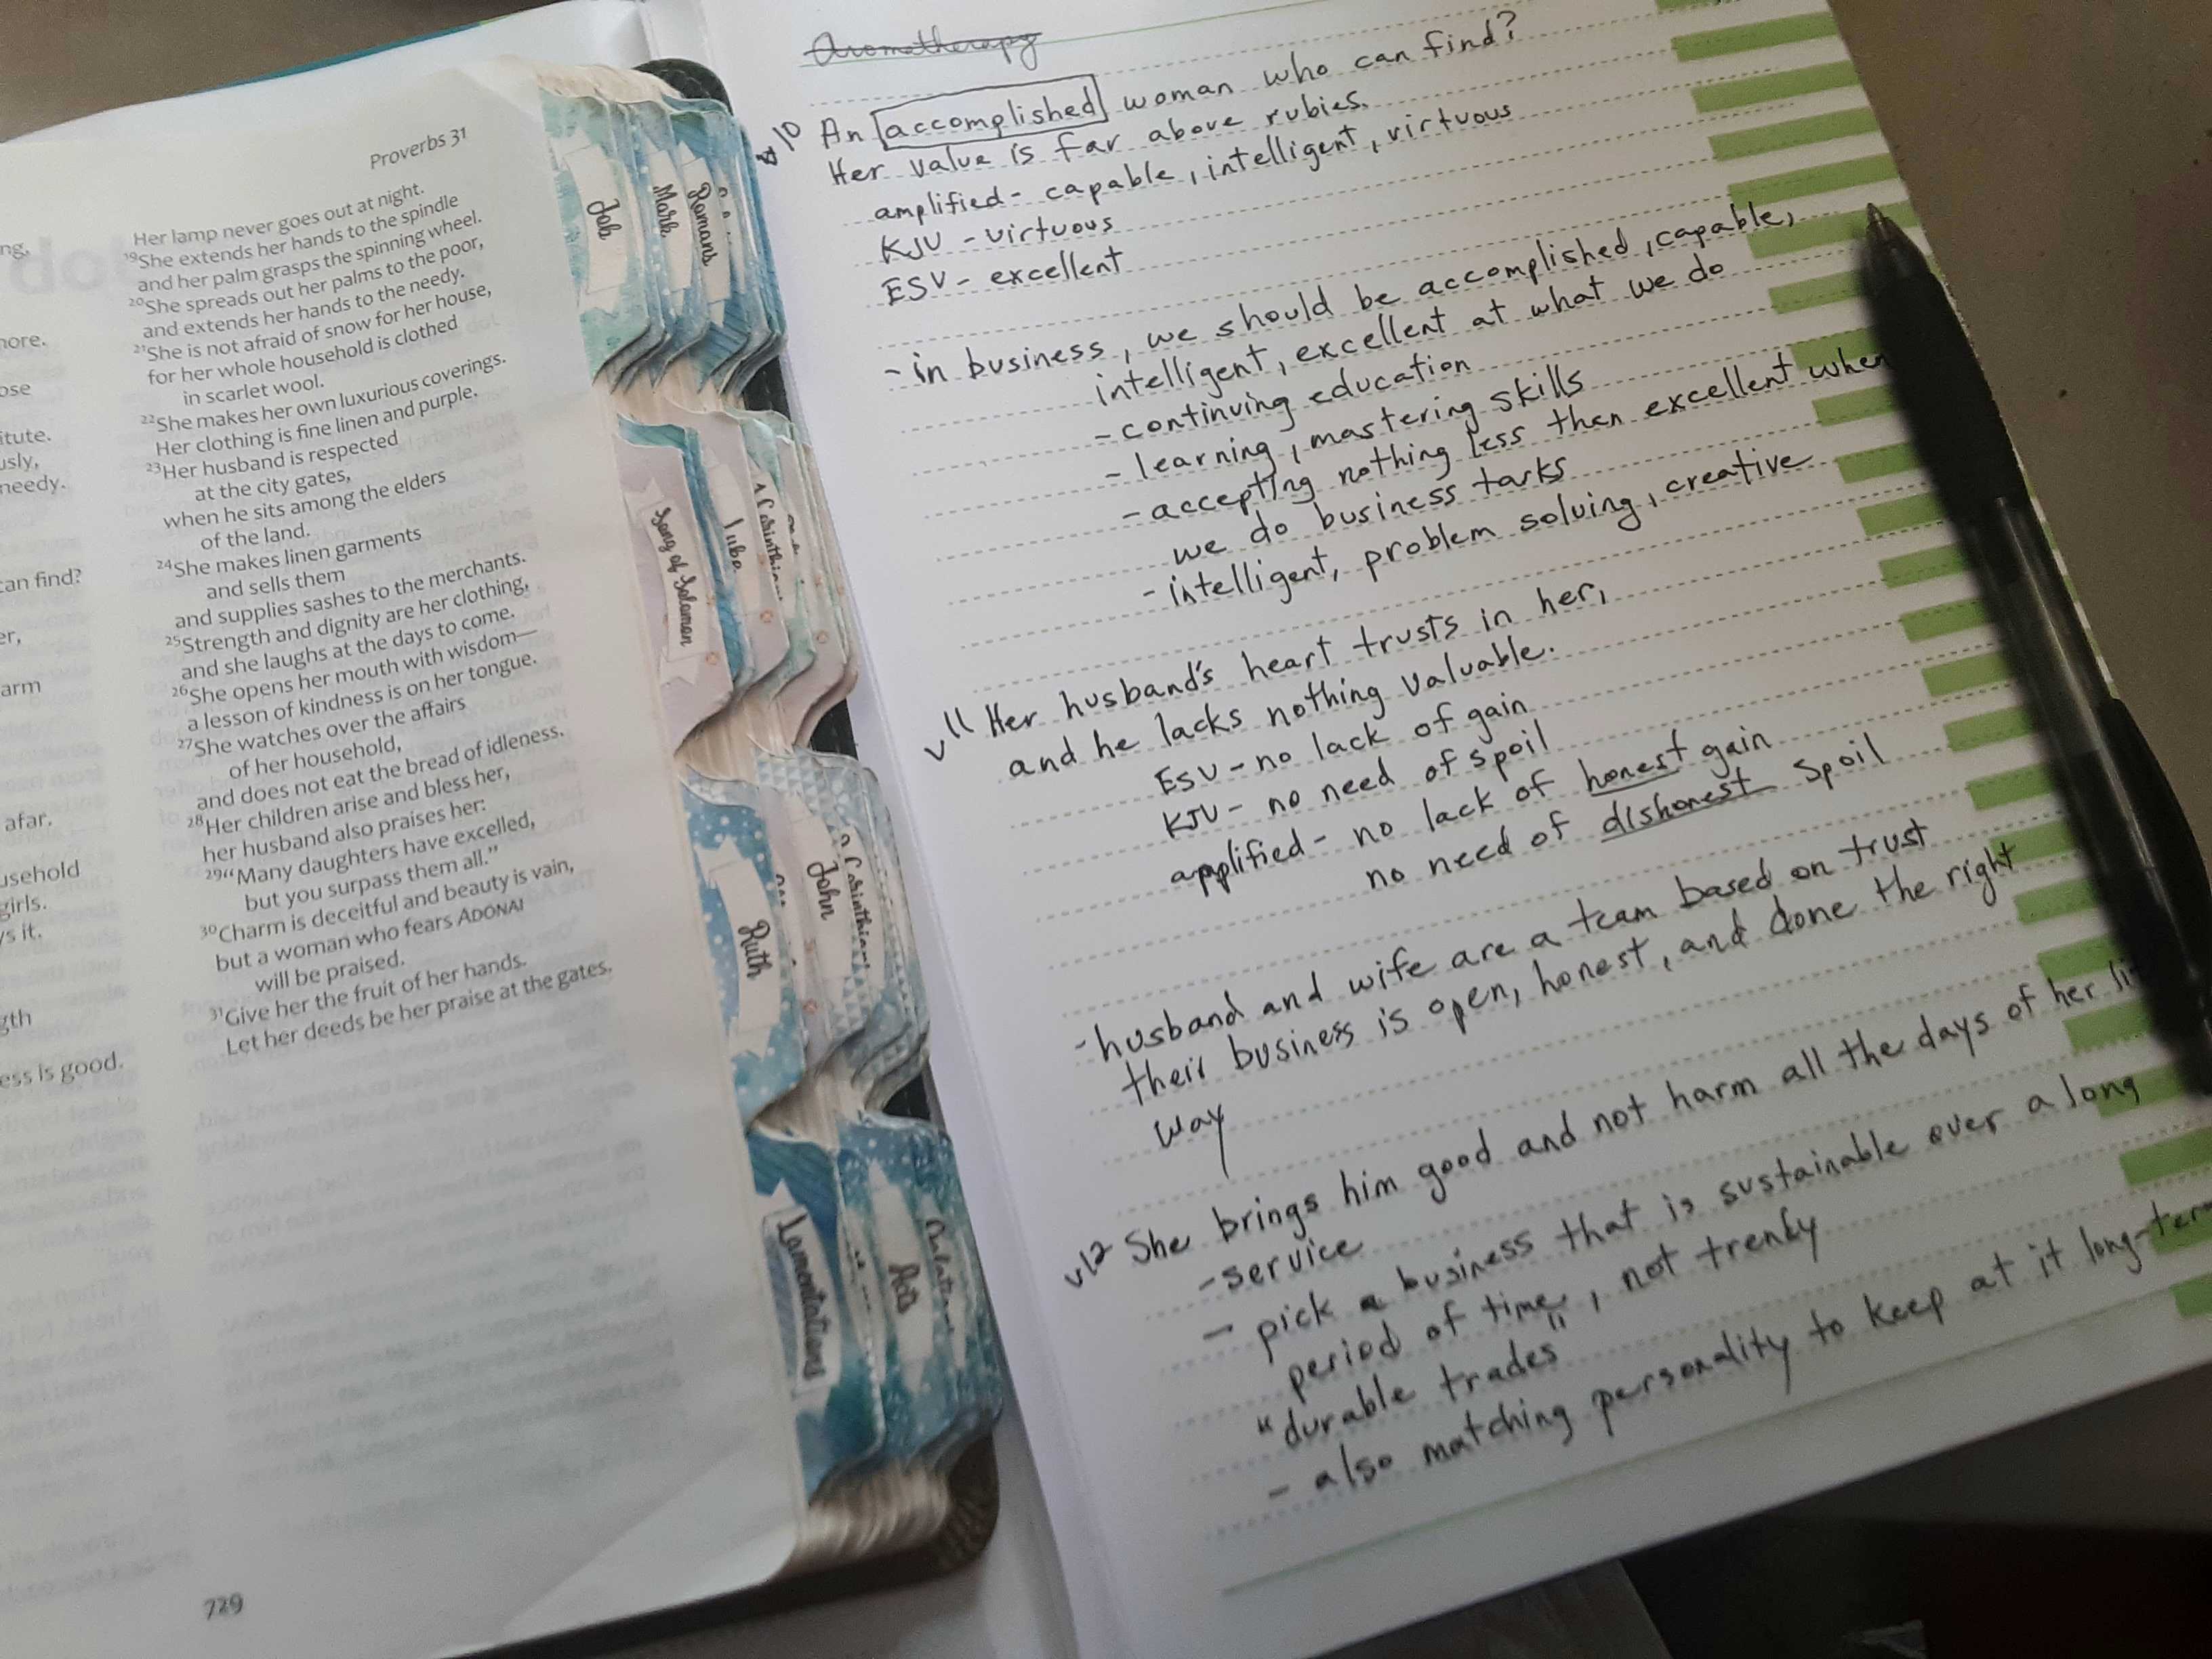 Proverbs 31
ng,
Her lamp never goes out at night.
¹⁹She extends her hands to the spindle
and her palm grasps the spinning wheel.
²⁰She spreads out her palms to the poor,
and extends her hands to the needy.
²¹She is not afraid of snow for her house,
for her whole household is clothed
in scarlet wool.
²²She makes her own luxurious coverings.
Her clothing is fine linen and purple.
²³Her husband is respected
at the city gates,
when he sits among the elders
of the land.
²⁴She makes linen garments
and sells them
and supplies sashes to the merchants.
²⁵Strength and dignity are her clothing,
and she laughs at the days to come.
²⁶She opens her mouth with wisdom—
a lesson of kindness is on her tongue.
²⁷She watches over the affairs
of her household,
and does not eat the bread of idleness.
²⁸Her children arise and bless her,
her husband also praises her:
²⁹“Many daughters have excelled,
but you surpass them all.”
³⁰Charm is deceitful and beauty is vain,
but a woman who fears ADONAI
will be praised.
³¹Give her the fruit of her hands.
Let her deeds be her praise at the gates.
729
nore.
ose
itute.
usly,
needy.
can find?
er,
arm
afar.
usehold
girls.
ys it.
gth
ess is good.
Job
Mark
Romans
Song of Solomon
Luke
1 Corinthians
Ruth
John
2 Corinthians
Lamentations
Acts
Aromatherapy
v10 An accomplished woman who can find?
Her value is far above rubies.
amplified - capable, intelligent, virtuous
KJV - virtuous
ESV - excellent
- in business, we should be accomplished, capable,
intelligent, excellent at what we do
- continuing education
- learning, mastering skills
- accepting nothing less then excellent when
we do business tasks
- intelligent, problem solving, creative
v11 Her husband's heart trusts in her,
and he lacks nothing valuable.
ESV - no lack of gain
KJV - no need of spoil
amplified - no lack of honest gain
no need of dishonest spoil
- husband and wife are a team based on trust
their business is open, honest, and done the right
way
v12 She brings him good and not harm all the days of her li
- service
- pick a business that is sustainable over a long
period of time, not trendy
"durable trades"
- also matching personality to keep at it long-term